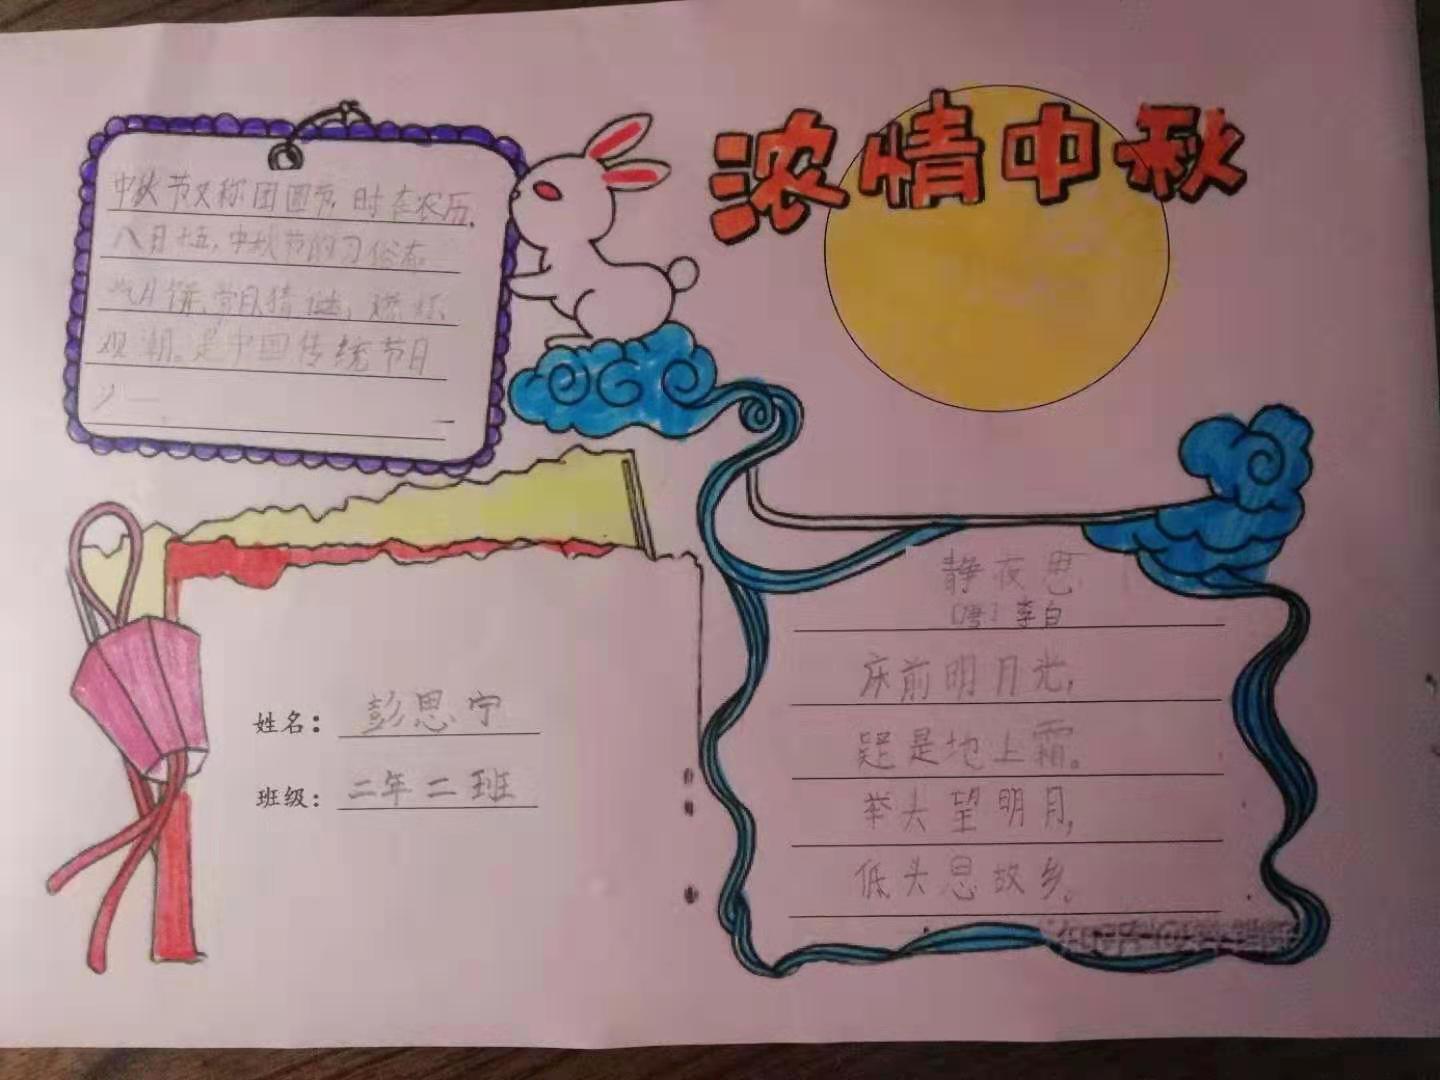 浓情中秋
中秋节又称团圆节,时在农历
八月十五,中秋节的习俗有
吃月饼、赏月猜谜,
观潮。是中国传统节日
之一
姓名：彭思宁
班级：二年二班
静夜思
［唐］李白
床前明月光,
疑是地上霜。
举头望明月,
低头思故乡。